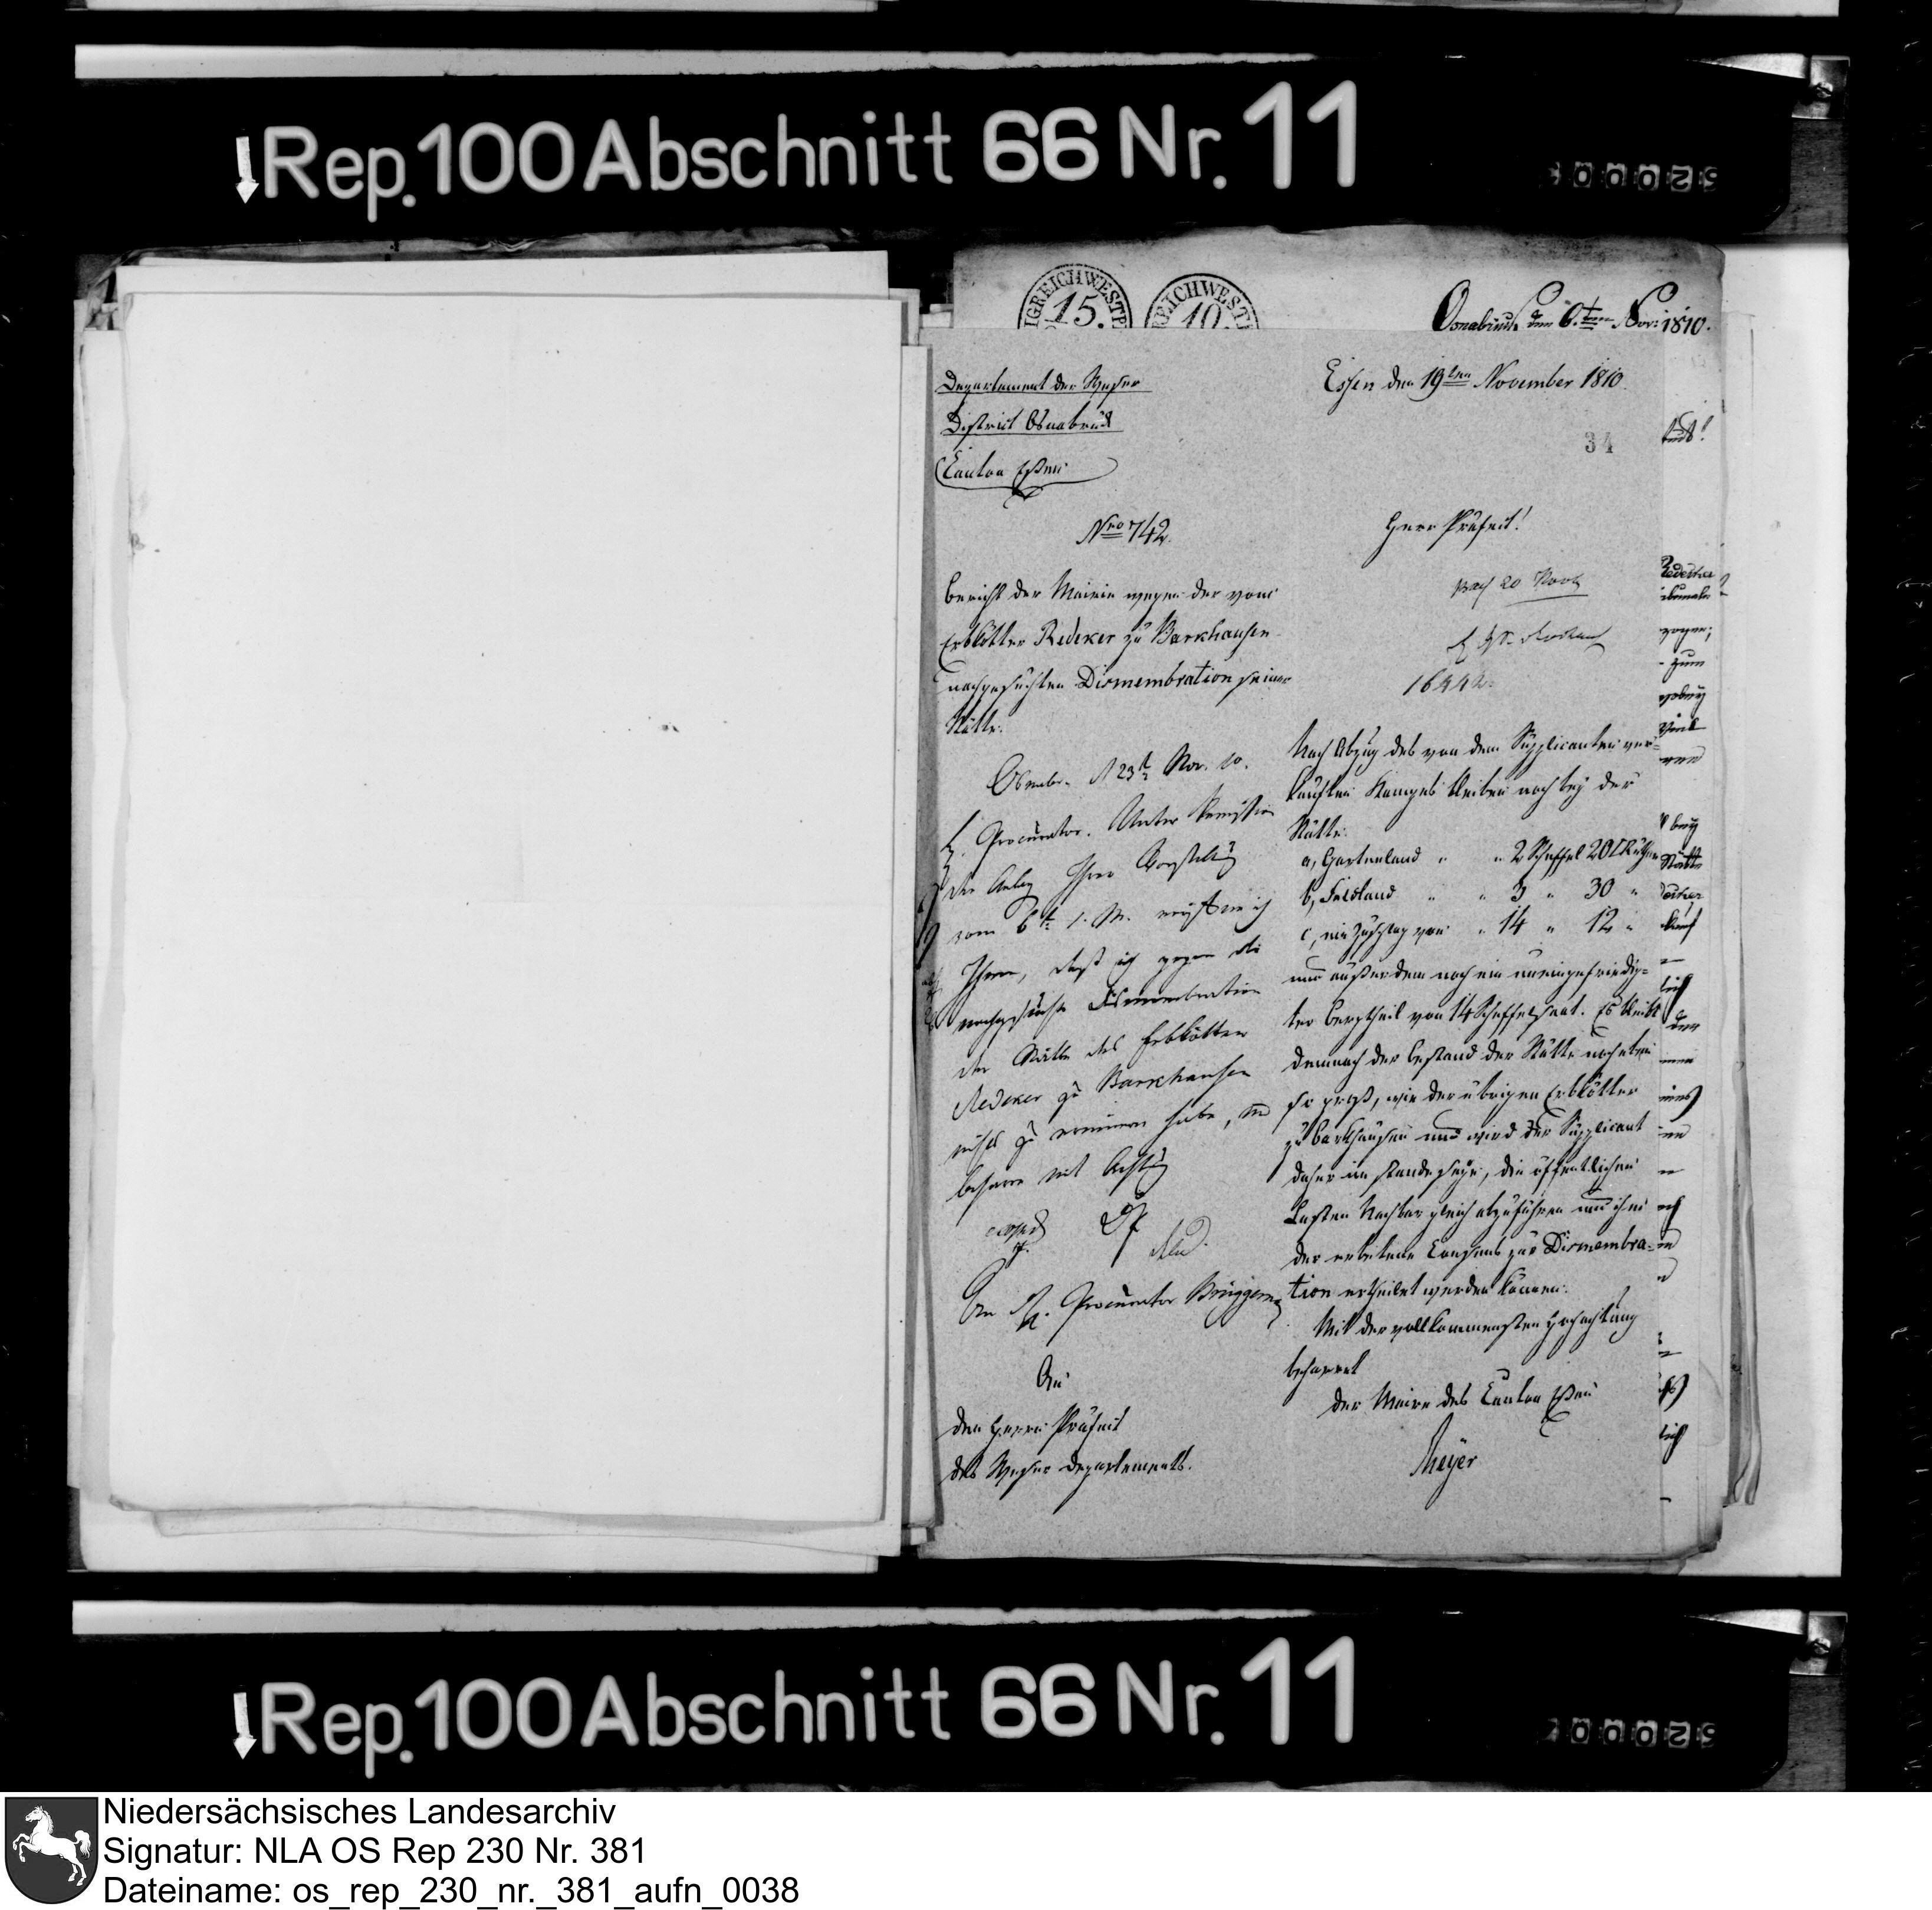 Rep. 100 Abschnitt 66 Nr. 11
00002
IGREICH WESTP
15.
REICH WESTF
10.
Osnabrück den 6.ten Nov: 1810.
Departement der Weser
District Osnabrück
Canton Essen
Essen den 19ten November 1810.
34
Nro 742.
Herr Präfect!
Bericht der Mairie wegen der vom
Erbkötter Redeker zu Barkhausen
nachgesuchten Dismembration seiner
Stätte.
20 Nov
16442.
Nach Abzug des von dem Supplicanten ver-
kauften Kampes bleiben noch bey der
Stätte:
a, Gartenland " " 2 Scheffel 20 Ruthen
b, Feldland " " 3 " 30 "
c, ein Zuschlag von " 14 " 12 "
und außerdem noch ein uneingefriedig-
ter Bergtheil von 14 Scheffelsaat. Es bleibt
demnach der Bestand der Stätte noch eben
so groß, wie der übrigen Erbkötter
zu Barkhausen und wird der Supplicant
daher im Stande seyn, die öffentlichen
Lasten Nachbar gleich abzuführen und ihm
der erbetene Consens zur Dismembra-
tion ertheilet werden können.
Mit der vollkommensten Hochachtung
beharret
der Maire des Canton Essen
Meyer
Osnabr. d 23t Nov. 10.
H. Procurator. Unter Remission
der Anlag Ihrer Vorstellung
vom 6t d. M. eröffne ich
Ihnen, daß ich gegen die
nachgesuchte Dismembration
der Stätte des Erbkötter
Redeker zu Barkhausen
nichts zu erinnern habe, und
beharre mit Achtung
An H. Procurator Brüggem
An
den Herrn Präfect
des Weser Departements.
Rep. 100 Abschnitt 66 Nr. 11
00002
Niedersächsisches Landesarchiv
Signatur: NLA OS Rep 230 Nr. 381
Dateiname: os_rep_230_nr._381_aufn_0038